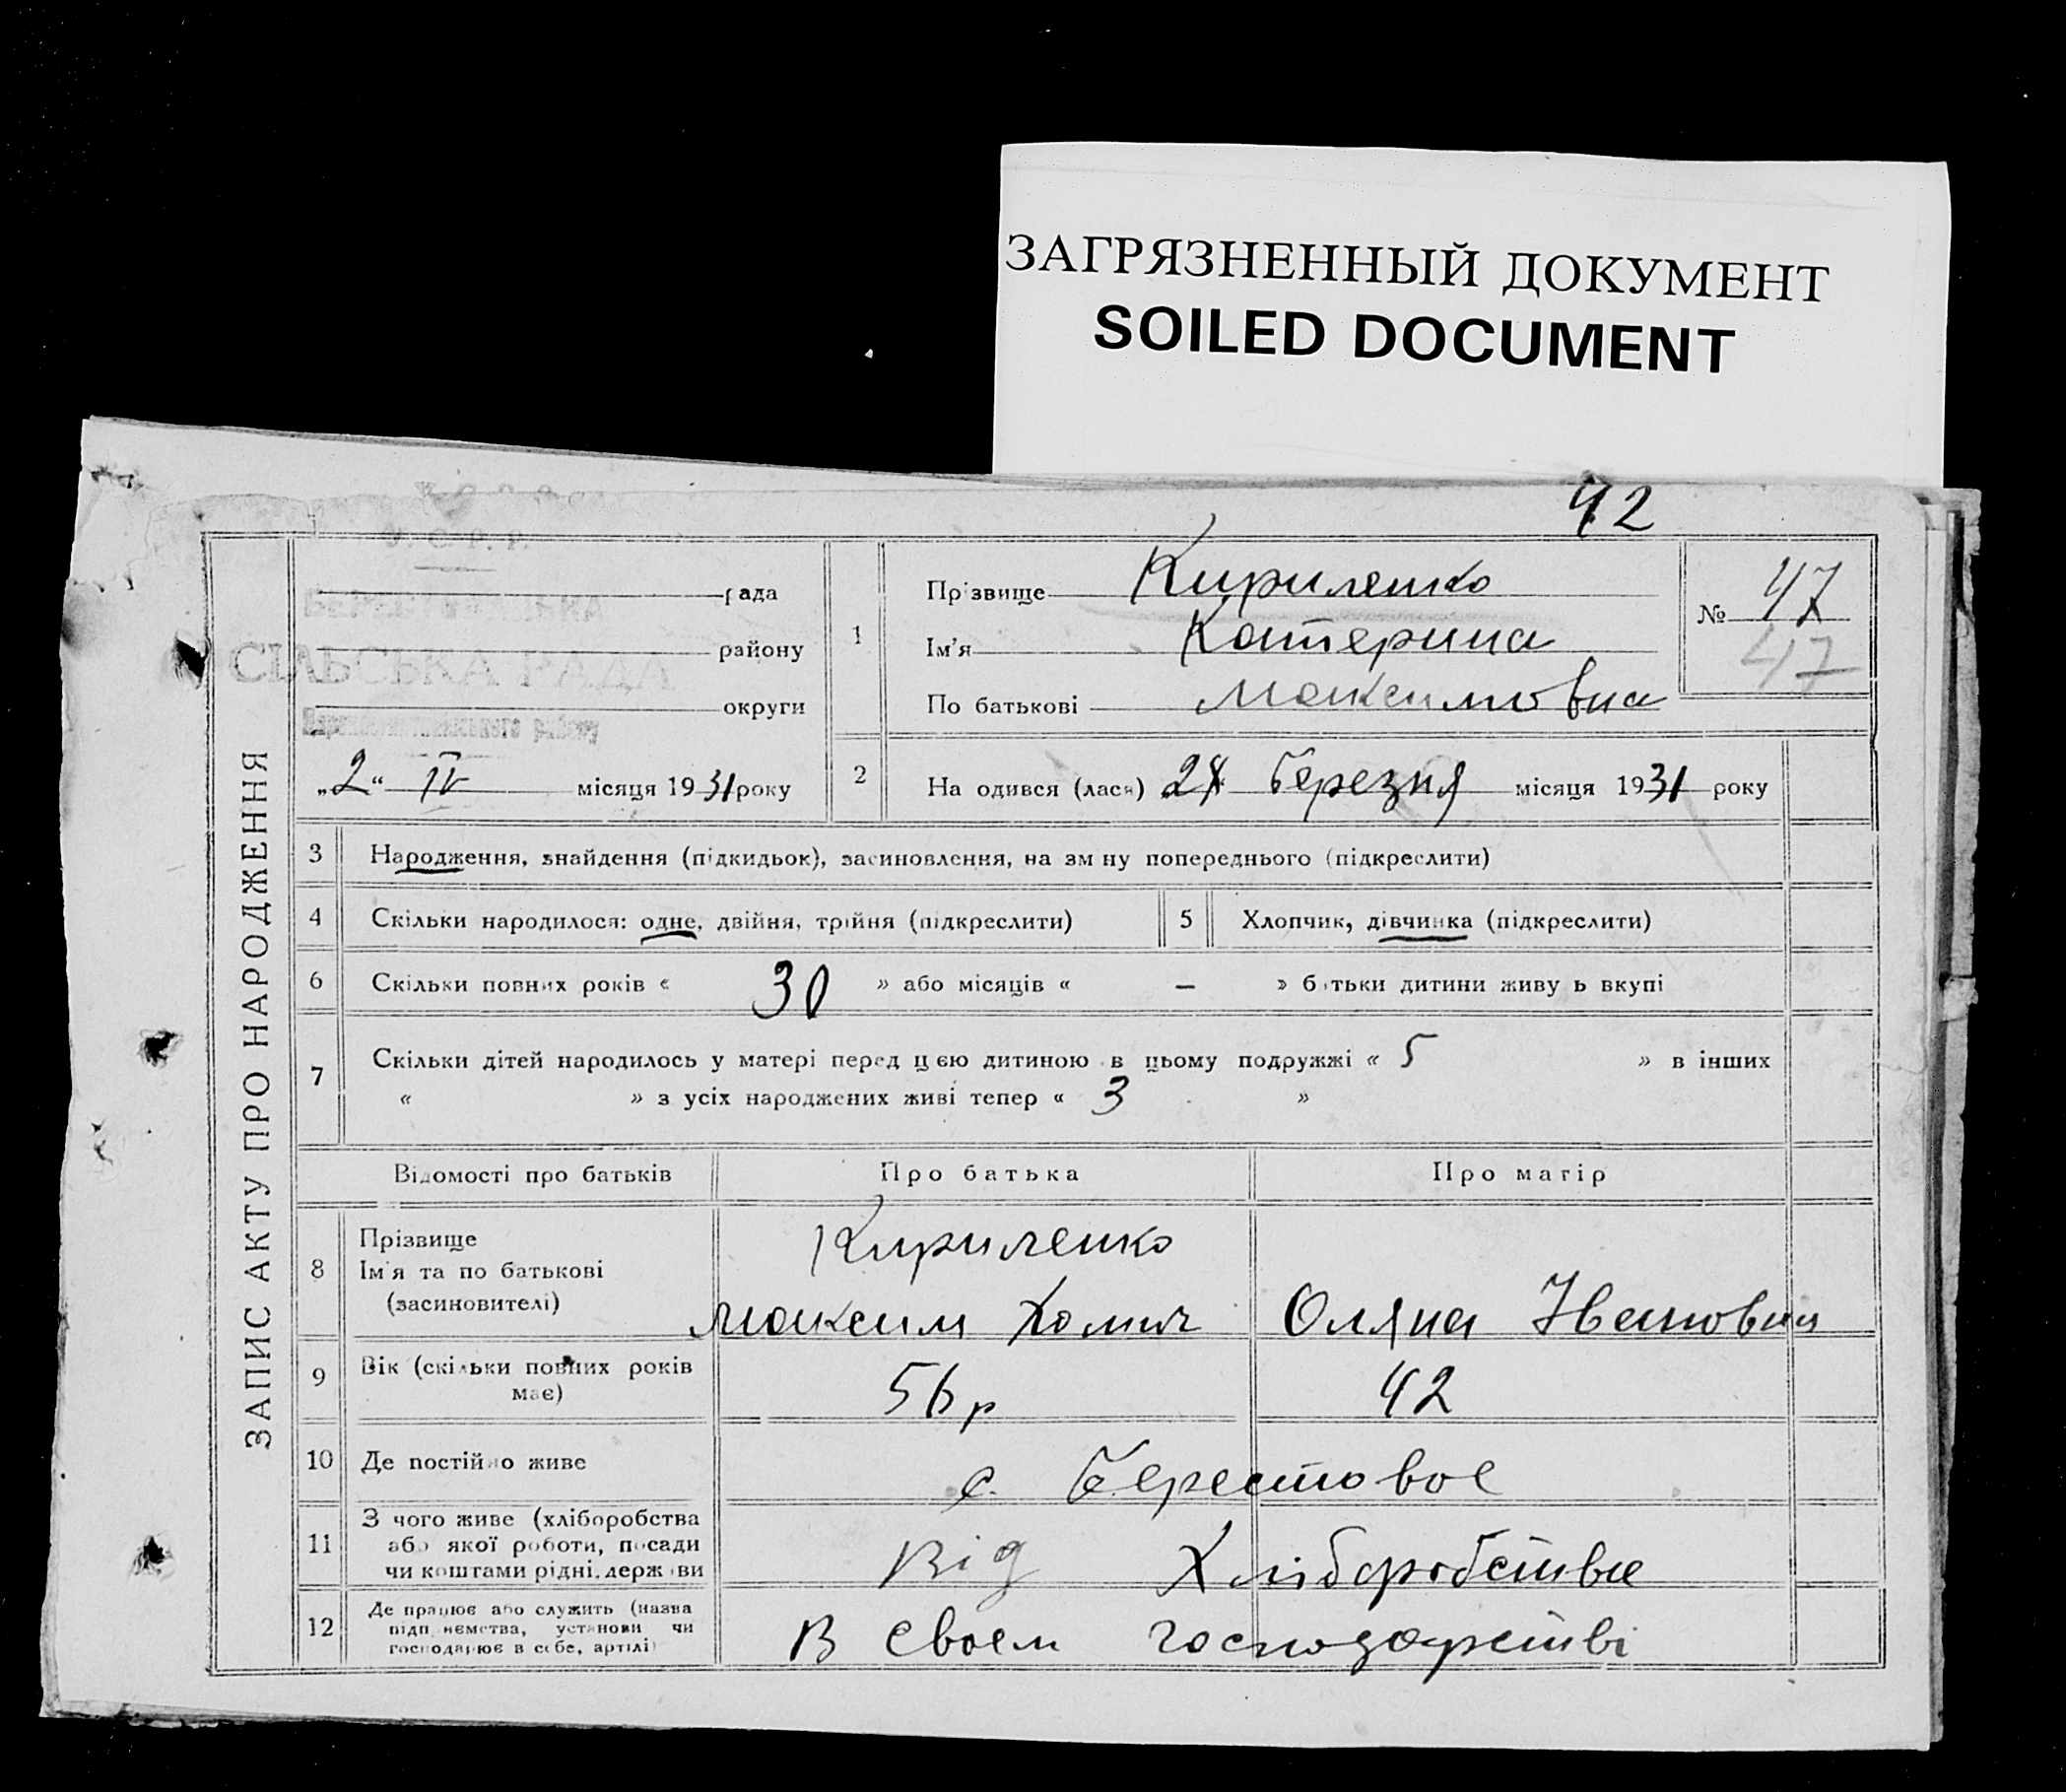 ЗАГРЯЗНЕННЫЙ ДОКУМЕНТ
SOILED DOCUMENT
42
У. С. Р. Р.
СІЛЬСЬКА РАДА
ЗАПИС АКТУ ПРО НАРОДЖЕННЯ
рада
району
округи
„2“ IV місяця 1931 року
1
Прізвище Кириленко
Ім'я Катерина
По батькові Максимовна
№ 47
47
2 На одився (лася) березня місяця 1931 року
3 Народження, знайдення (підкидьок), засиновлення, на зм ну попереднього (підкреслити)
4 Скільки народилося: одне, двійня, трійня (підкреслити) 5 Хлопчик, дівчинка (підкреслити)
6 Скільки повних років « 30 » або місяців « – » б тьки дитини живу ь вкупі
7 Скільки дітей народилось у матері перед цією дитиною в цьому подружжі « 5 » в інших
« » з усіх народжених живі тепер « 3 »
Відомості про батьків Про батька Про матір
8 Прізвище Ім'я та по батькові (засиновителі)
Кириленко
Максим Хомич Оляна Івановна
9 Вік (скільки повних років має) 56 р 42
10 Де постійно живе с. Берестовое
11 З чого живе (хліборобства або якої роботи, посади чи коштами рідні, держ ви Від Хліборобства
12 Де працює або служить (назва підп иємства, установи чи господарює в себе, артілі) В своем господарстві